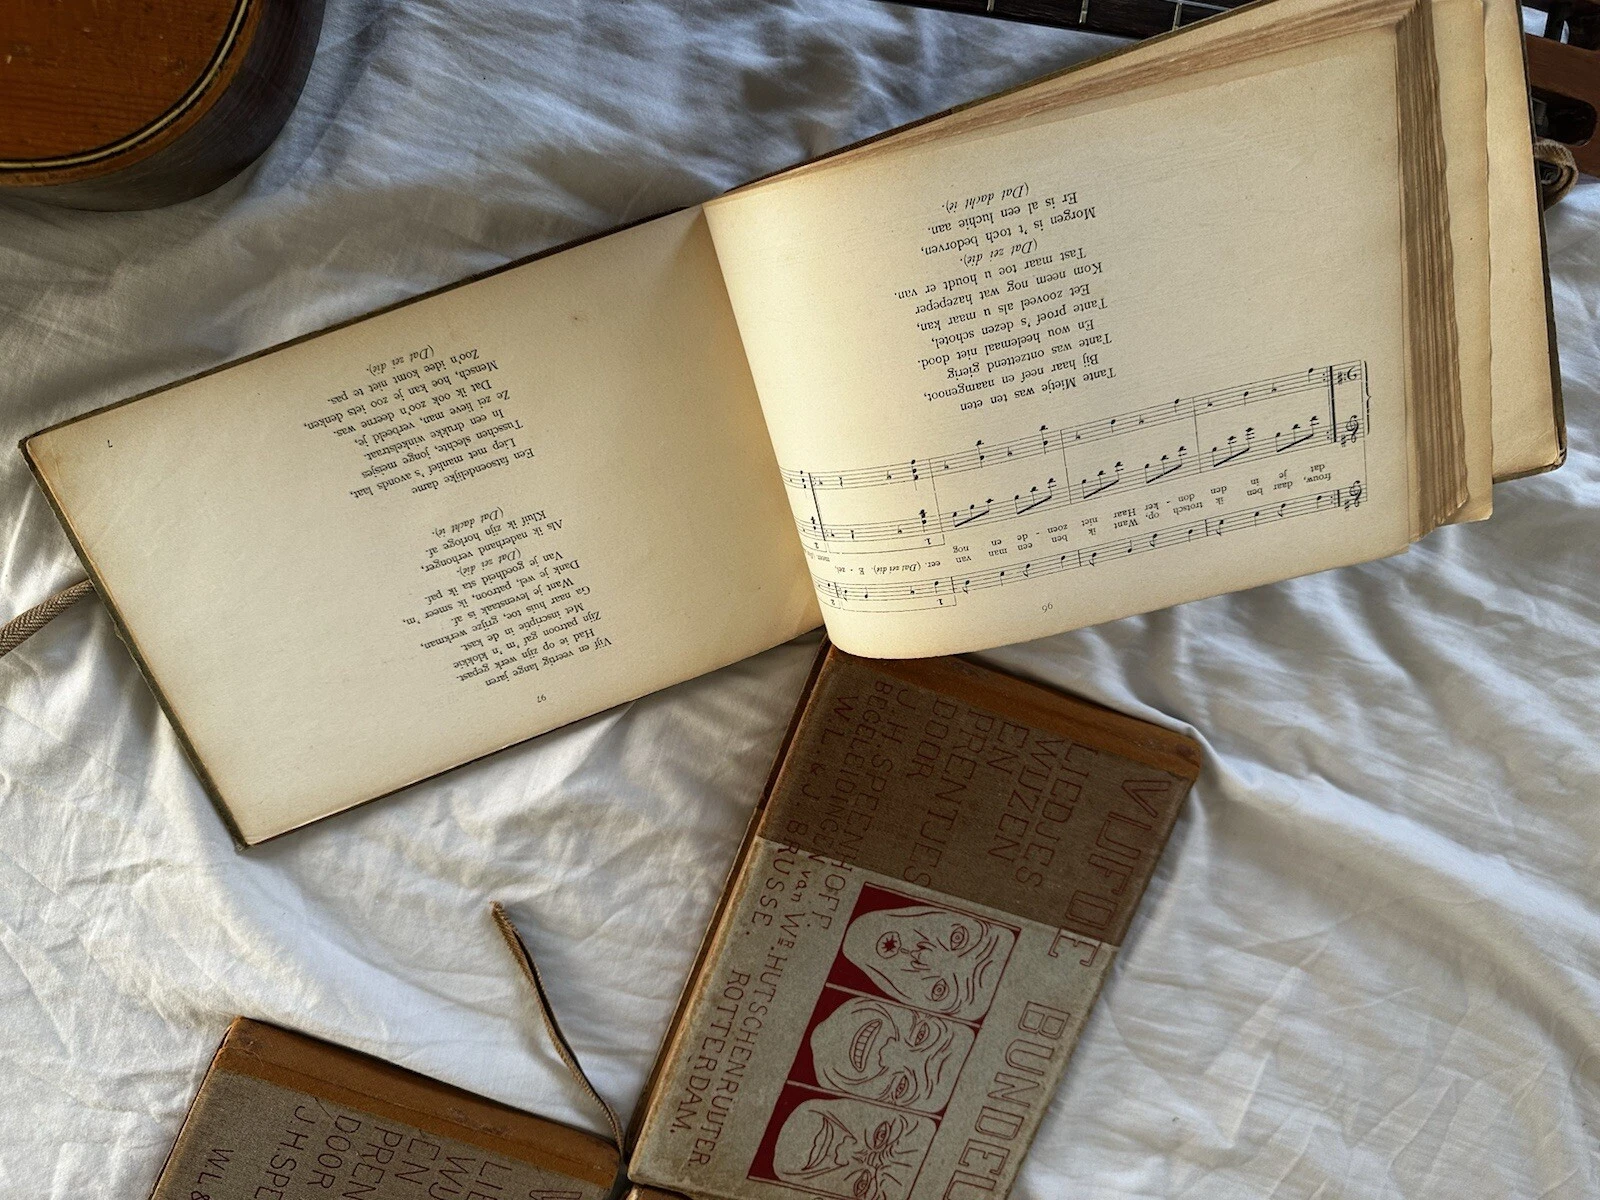 96
1 2
van eer. (Dat zei die). E - zel,
een man de - en nog
trotsch op, Want ik ben
frouw, daar ben ik don - ker Haar niet zoen
dat je in den
Tante Mietje was ten eten
Bij haar neef en naamgenoot,
Tante was ontzettend gierig
En wou heelemaal niet dood.
Tante proef 's dezen schotel,
Eet zooveel als u maar kan,
Kom neem nog wat hazepeper
Tast maar toe u houdt er van.
(Dat zei die).
Morgen is 't toch bedorven,
Er is al een luchie aan.
(Dat dacht ië).
97
Vijf en veertig lange jaren
Had ie op zijn werk gepast.
Zijn patroon gaf 'm 'n klokkie
Met inscriptie in de kast.
Ga naar huis toe, grijze werkman,
Want je levenstaak is af.
Dank je wel, patroon, ik smeer 'm,
Van je goedheid sta ik paf.
(Dat zei die).
Als ik naderhand verhonger,
Kluif ik zijn horloge af.
(Dat dacht ië).
Een fatsoendelijke dame
Liep met manlief 's avonds laat,
Tusschen slechte, jonge meisjes
In een drukke winkelstraat.
Ze zei lieve man, verbeeld je,
Dat ik ook zoo'n deerne was.
Mensch, hoe kan je zoo iets denken,
Zoo'n idee komt niet te pas.
(Dat zei die).
7
VIJFDE BUNDEL
LIEDJES
WIJZEN
EN
PRENTJES
DOOR
J.H. SPEENHOFF.
BEGELEIDINGEN van WM. HUTSCHENRUIJTER
W.L. & J. BRUSSE. ROTTERDAM.
V
LIE
WIJ
EN
PREN
DOOR
J H SPE
W L &